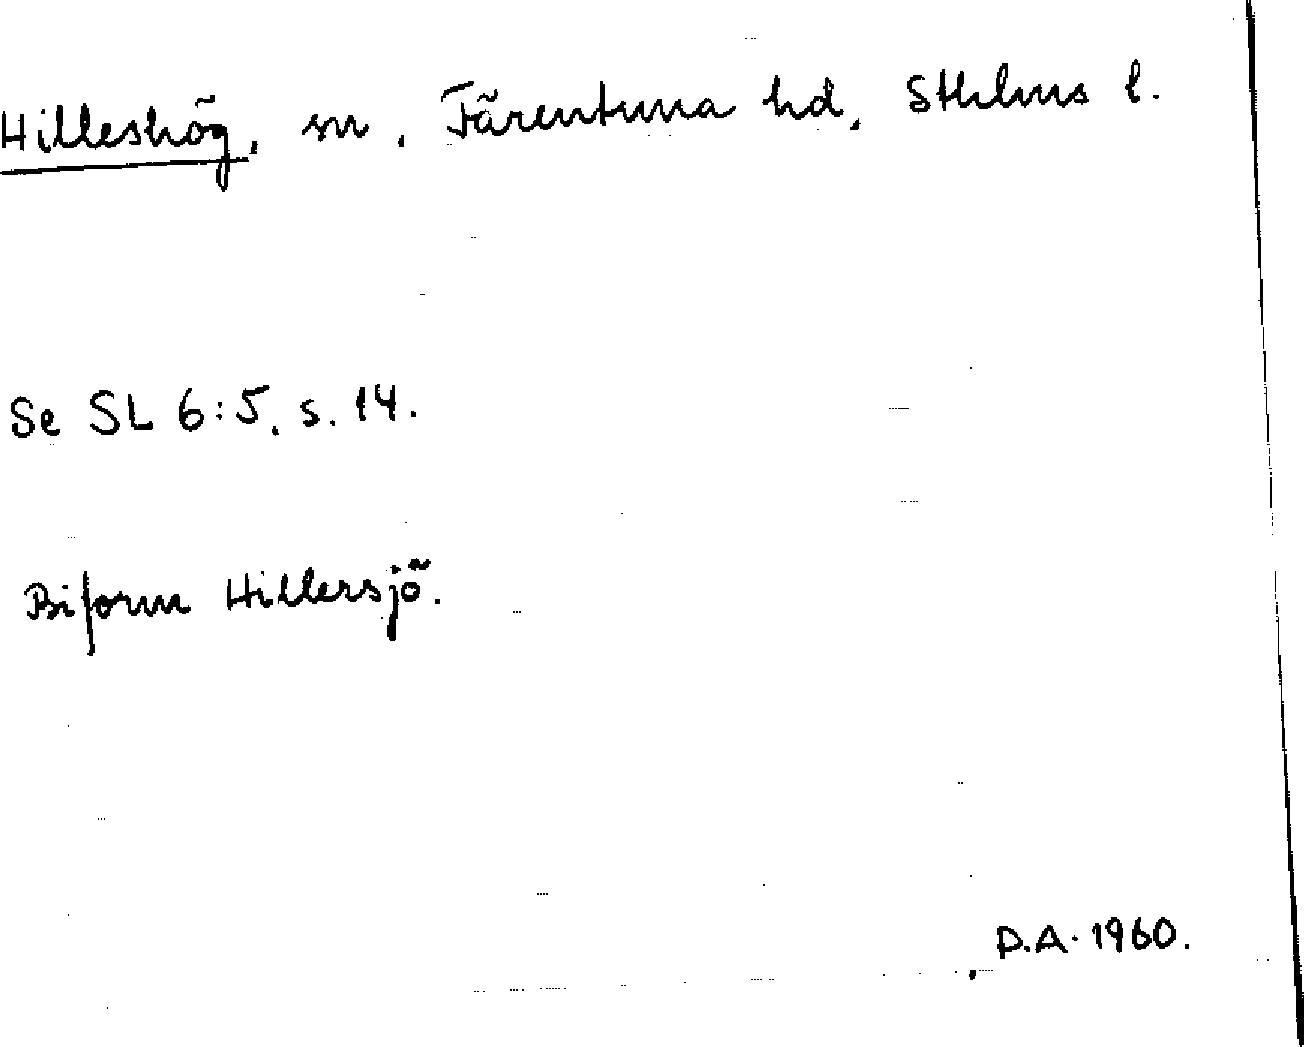 Hilleshög, sn, Färentuna hd, Sthlms l.
Se SL 6:5, s. 14.
Biform Hillersjö.
D.A. 1960.